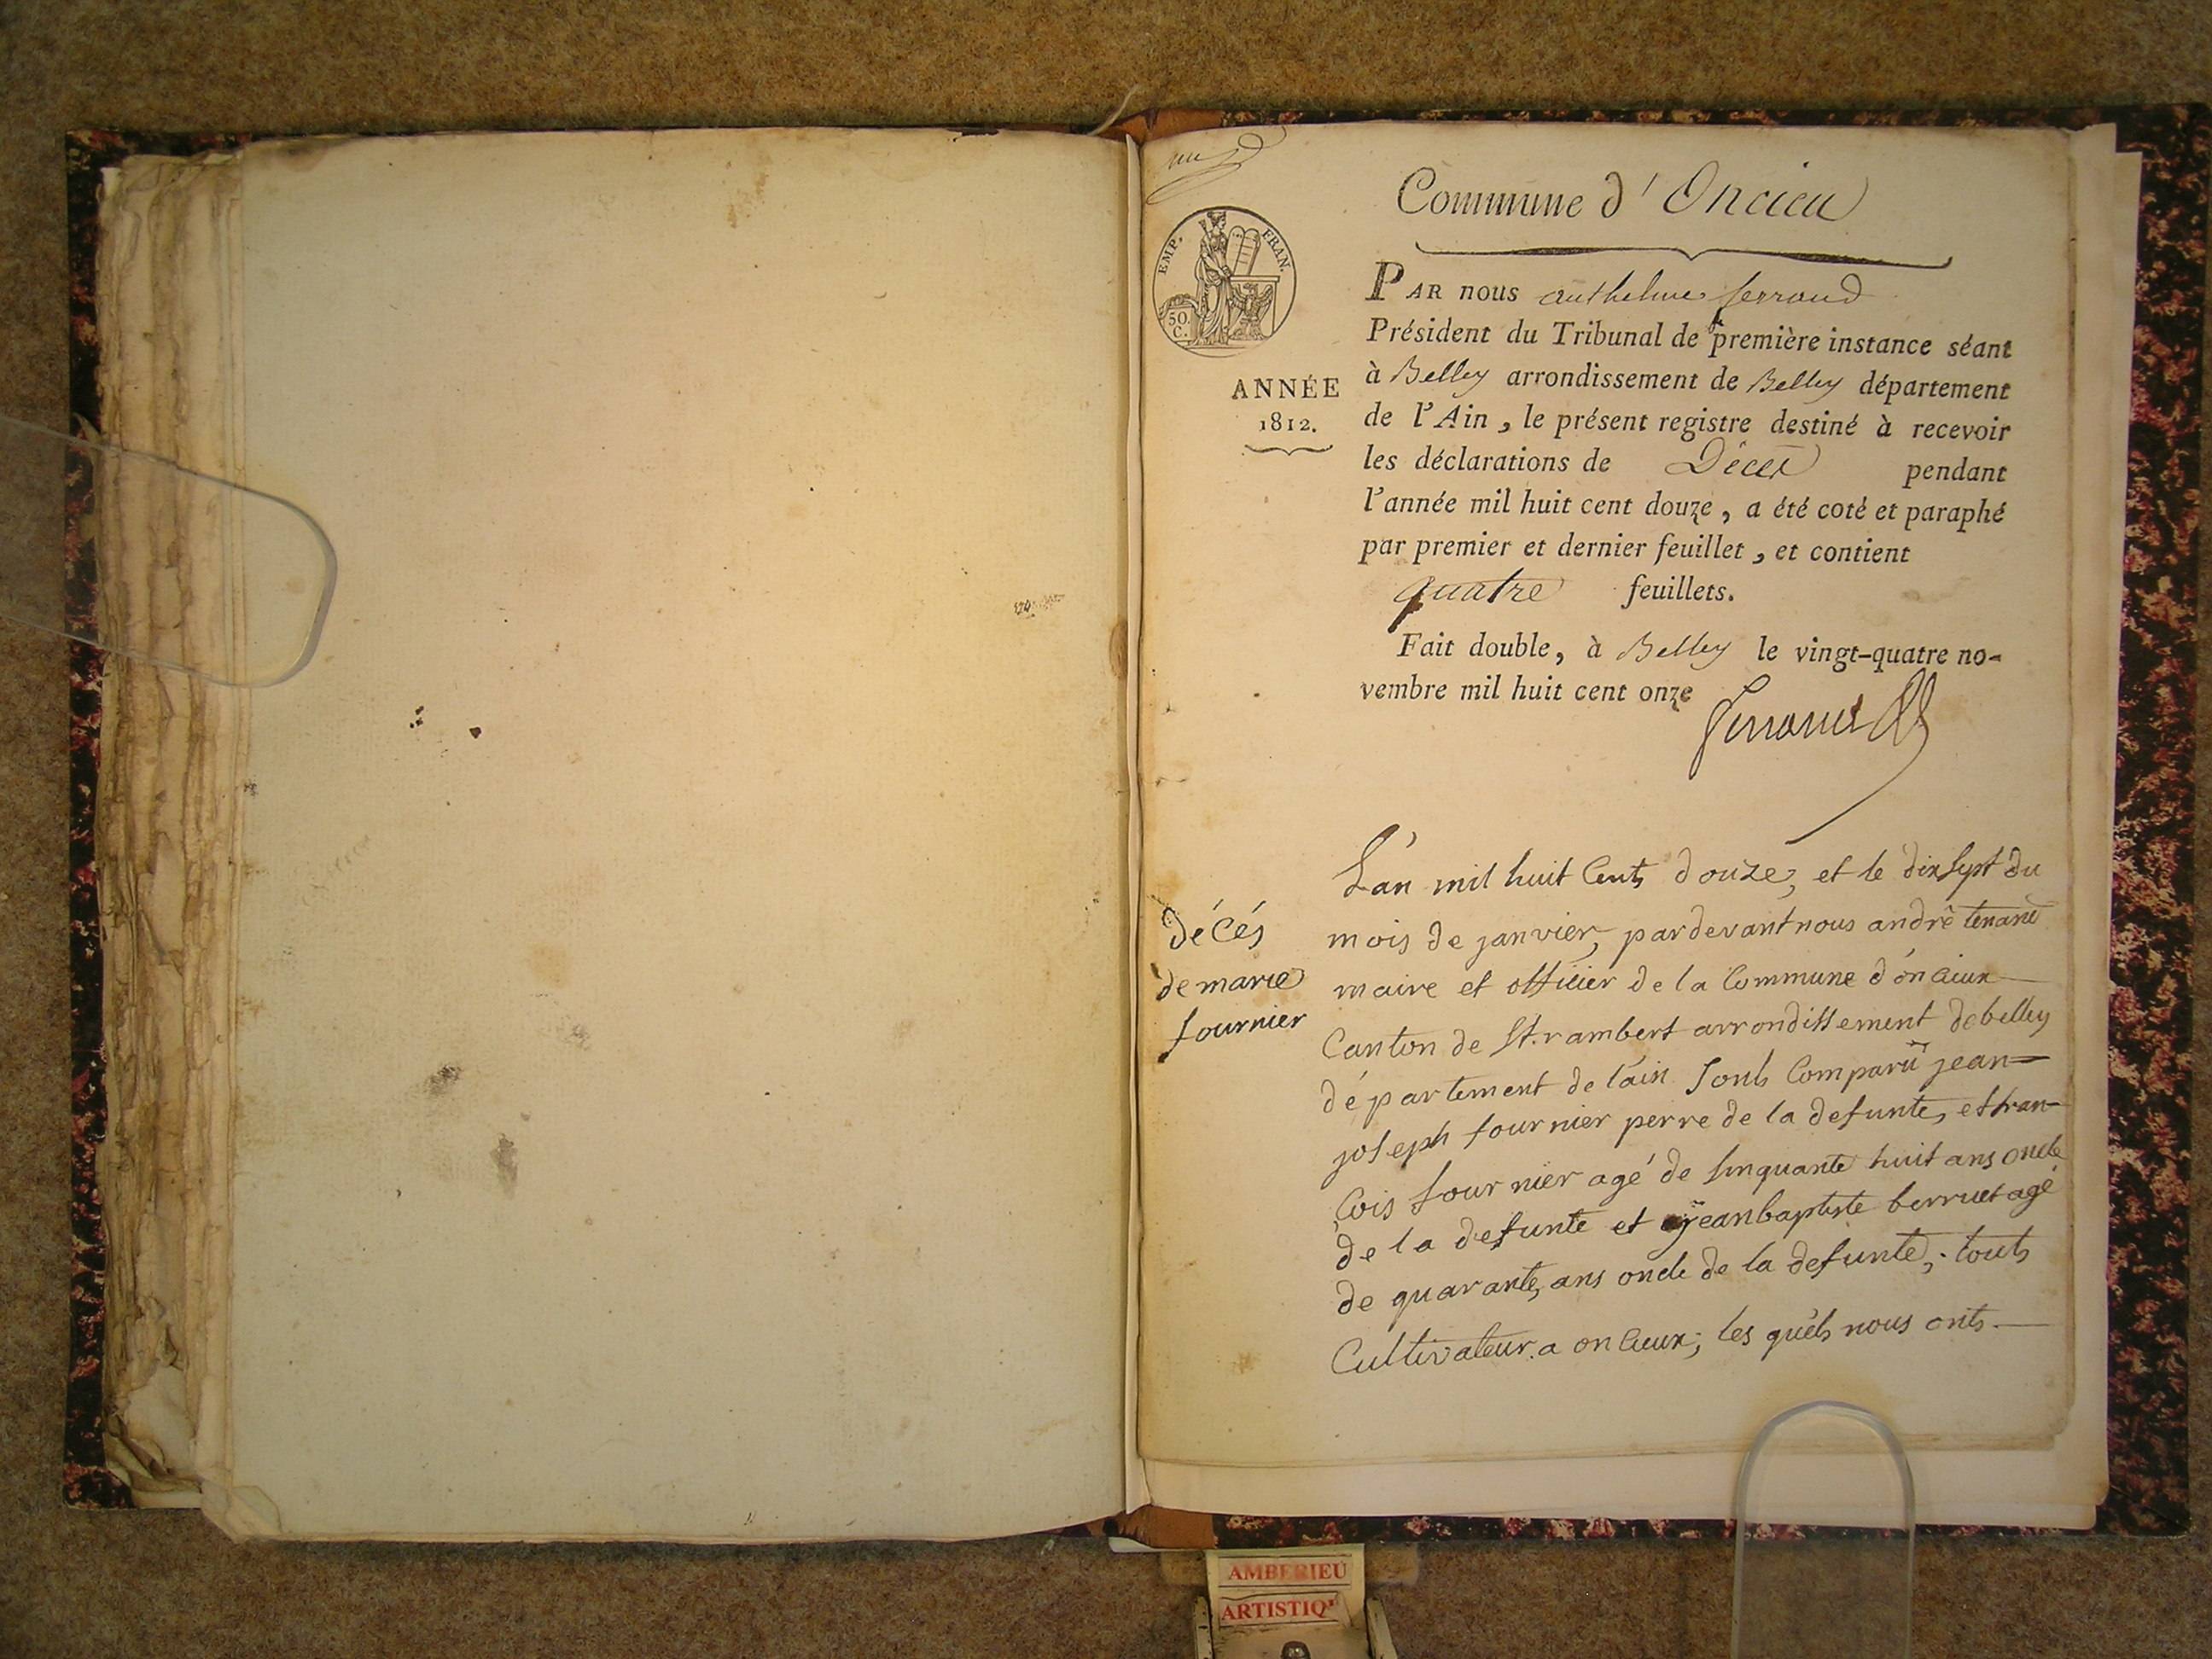 Commune d'Oncieu
EMP. FRAN.
50.
C.
ANNÉE
1812.
PAR nous anthelme ferrand
Président du Tribunal de première instance séant
à Belley arrondissement de Belley département
de l'Ain, le présent registre destiné à recevoir
les déclarations de Décès pendant
l'année mil huit cent douze, a été coté et paraphé
par premier et dernier feuillet, et contient
quatre feuillets.
Fait double, à Belley le vingt-quatre no-
vembre mil huit cent onze
décés
de marie
fournier
L'an mil huit Cents douze, et le dix sept du
mois de janvier, pardevant nous andré tenand
maire et officier de la Commune d'onciux
Canton de St. rambert arrondissement de belley
département de l'ain sonts Comparû jean=
joseph fournier perre de la defunte, et fran-
Cois fournier agé de sinquante huit ans oncle
de la defunte et jeanbaptiste berruet agé
de quarante, ans oncle de la defunte; touts
Cultivateur a oncieux; les quels nous onts
AMBERIEU
ARTISTIQ